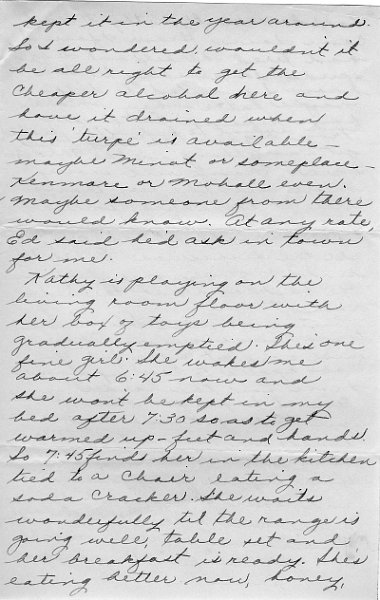 kept it in the year around.
So I wondered, wouldn't it
be all right to get the
cheaper alcohol here and
have it drained when
this 'turpe' is available -
maybe Minot or someplace -
Kenmare or Mohall even.
Maybe someone from there
would know. At any rate,
Ed said he'd ask in town
for me.
Kathy is playing on the
living room floor with
her box of toys being
gradually emptied. She's one
fine girl. She wakes me
about 6:45 now and
she wont be kept in my
bed after 7:30 so as to get
warmed up - feet and hands.
So 7:45 finds her in the kitchen
tied to a chair eating a
soda cracker. She waits
wonderfully til the range is
going well, table set and
her breakfast is ready. She's
eating better now, honey,